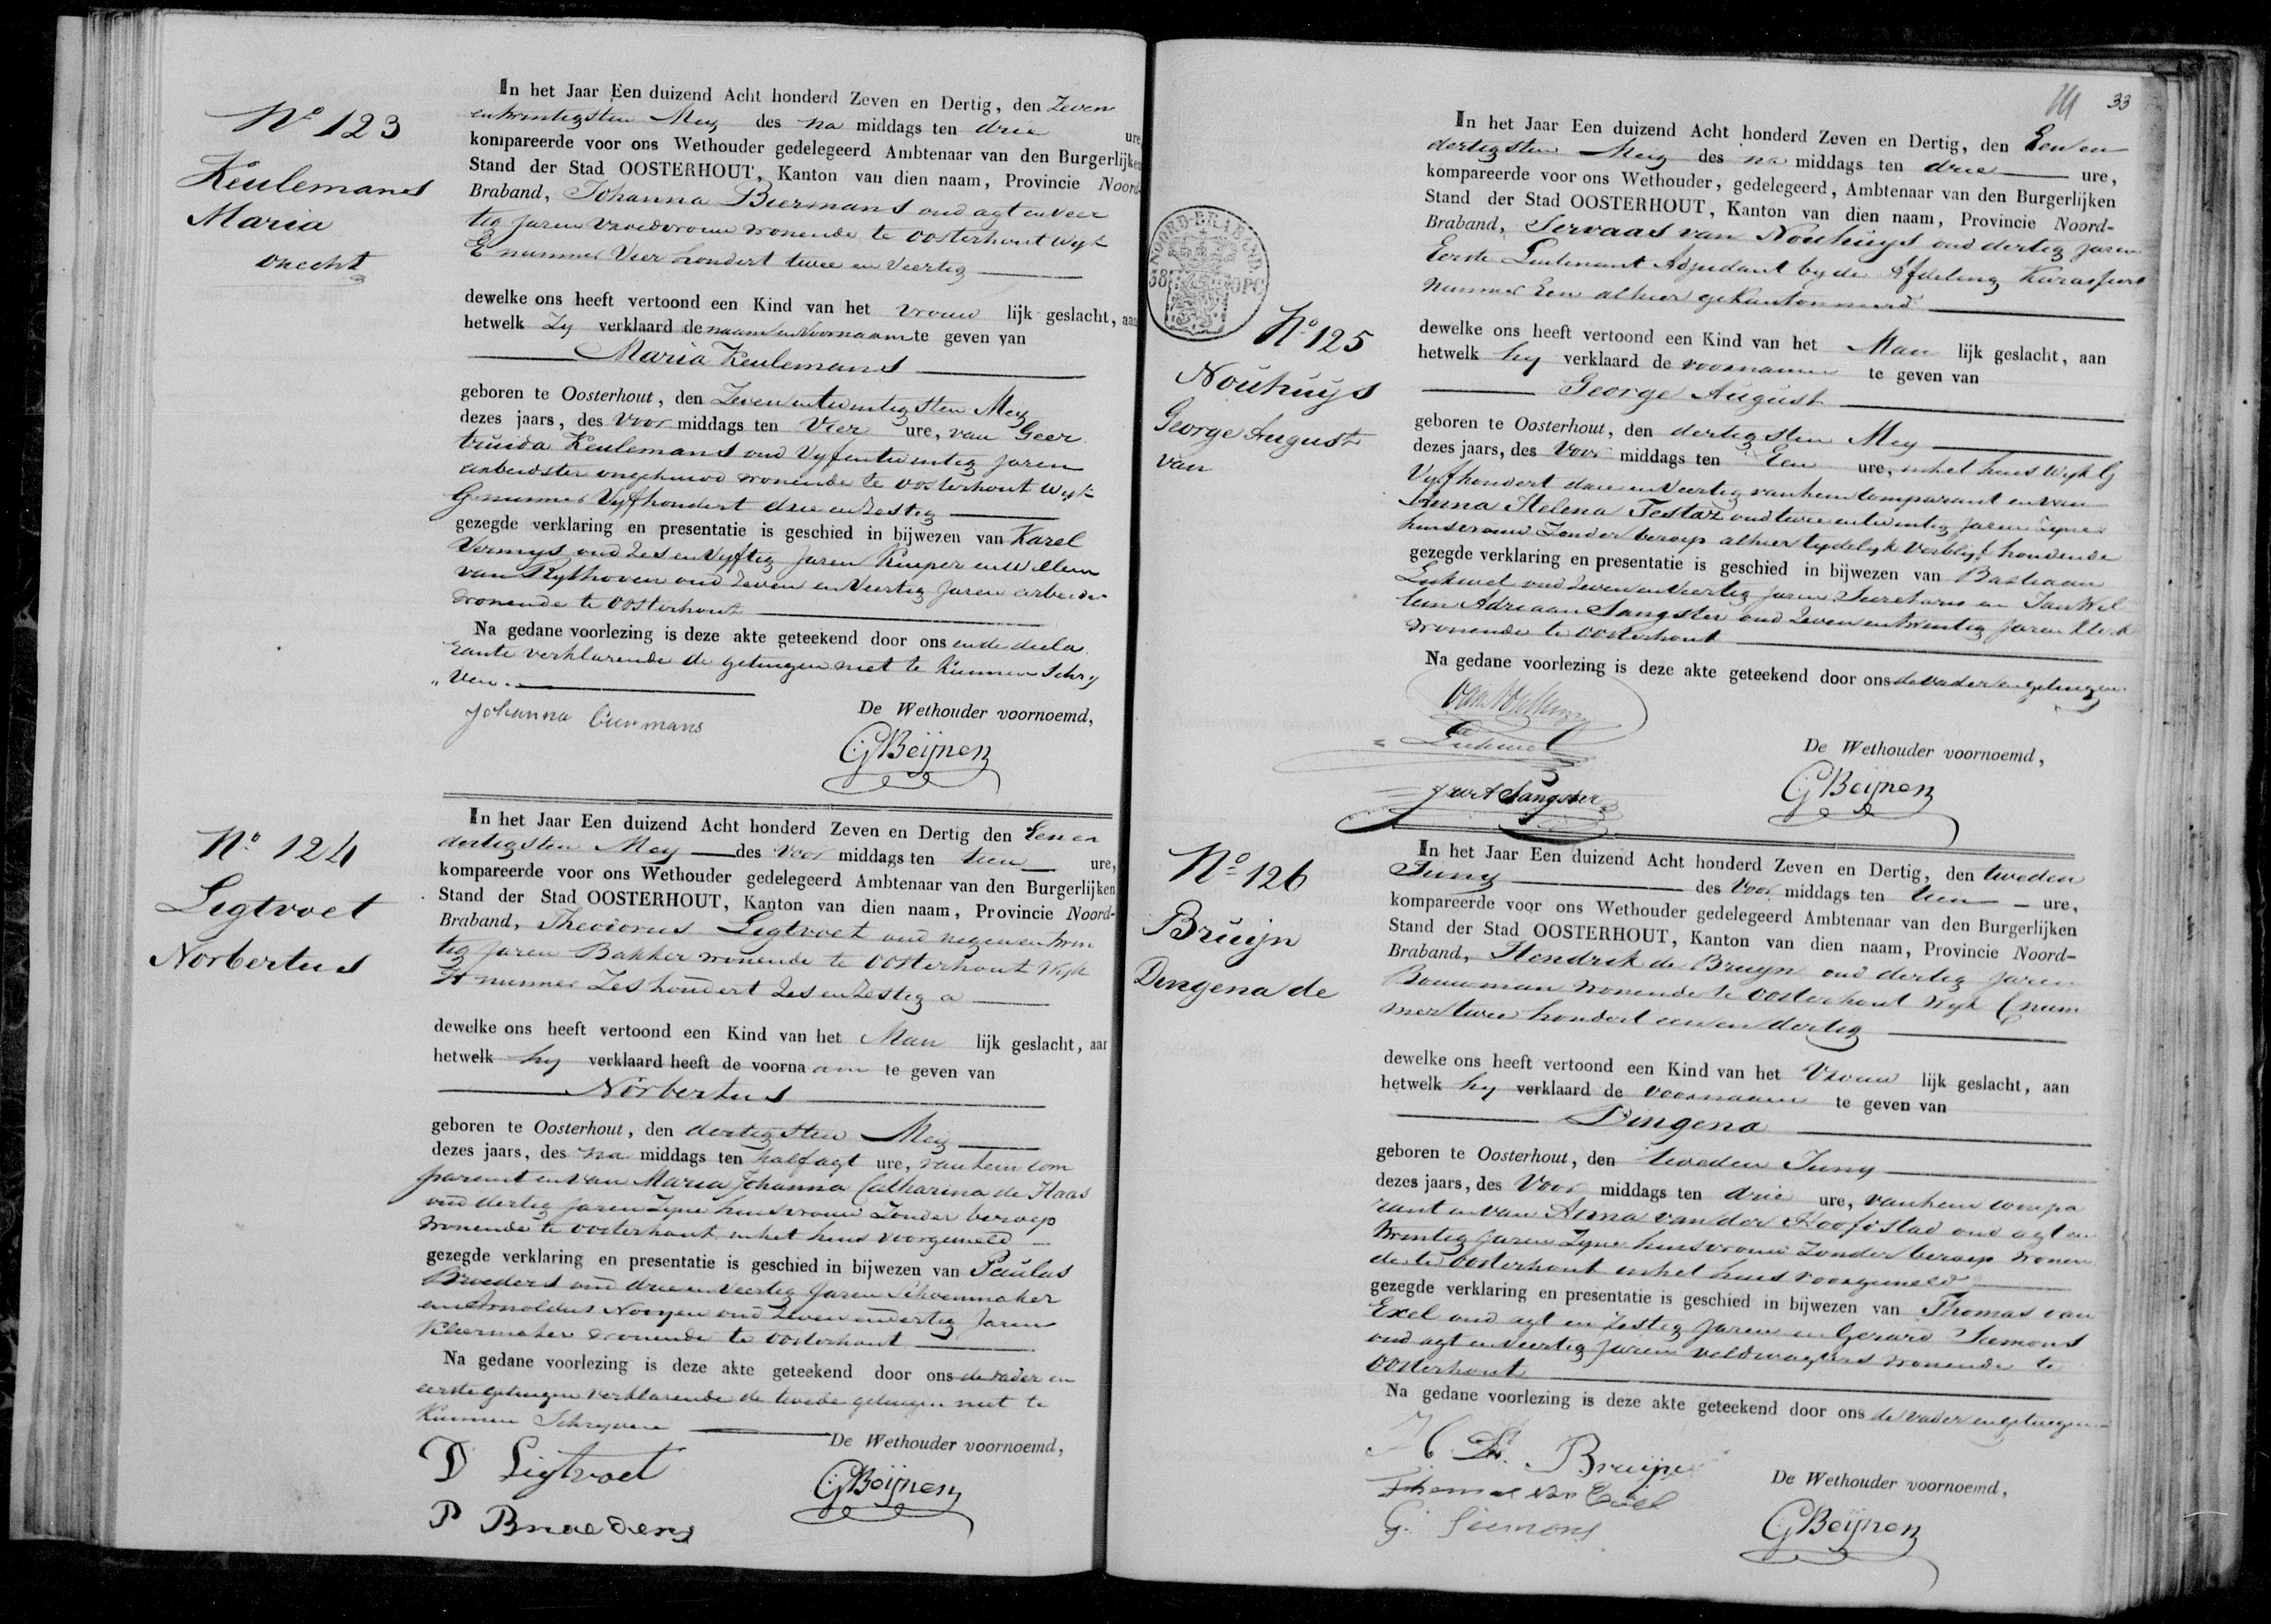 Nº 123
Keulemans
Maria
onecht
In het Jaar Een duizend Acht honderd Zeven en Dertig, den Zeven
entwintigsten Mey des na middags ten drie ure
kompareerde voor ons Wethouder gedelegeerd Ambtenaar van den Burgerlijken
Stand der Stad OOSTERHOUT, Kanton van dien naam, Provincie Noord-
Braband, Johanna Biermans oud agt en veer
tig jaren vroedvrouw wonende te oosterhout wyk
E nummer Vier hondert twee en veertig
dewelke ons heeft vertoond een Kind van het vrouw lijk geslacht, aan
hetwelk Zy verklaard de naam en voornaam te geven van
Maria Keulemans
geboren te Oosterhout, den Zevenentwintigsten Mey
dezes jaars, des Voor middags ten Vier ure, van Geer
truida Keulemans oud Vyfentwintig jaren
arbeidster ongehuwd wonende te oosterhout wyk
G nummer Vyfhondert drie en zestig
gezegde verklaring en presentatie is geschied in bijwezen van Karel
Vermys oud Zes en Vyftig jaren Kuiper en Willem
van Rythoven oud Zeven en Veertig jaren arbeider
wonende te Oosterhout
Na gedane voorlezing is deze akte geteekend door ons en de decla
rante verklarende de getuigen niet te kunnen Schry
„ ven.
Johanna Biermans
De Wethouder voornoemd,
CGBeijnen
Nº 124
Ligtvoet
Norbertus
In het Jaar Een duizend Acht honderd Zeven en Dertig den Een en
dertigsten Mey des Voor middags ten tien ure,
kompareerde voor ons Wethouder gedelegeerd Ambtenaar van den Burgerlijken
Stand der Stad OOSTERHOUT, Kanton van dien naam, Provincie Noord-
Braband, Theodorus Ligtvoet oud negen en twin
tig jaren Bakker wonende te Oosterhout Wyk
H nummer Zes hondert Zes en Zestig a
dewelke ons heeft vertoond een Kind van het Man lijk geslacht, aan
hetwelk hy verklaard heeft de voorna am te geven van
Norbertus
geboren te Oosterhout, den dertigsten Mey
dezes jaars, des na middags ten half agt ure, van hem com
parant en van Maria Johanna Catharina de Haas
oud dertig jaren Zyne huisvrouw Zonder beroep
wonende te oosterhout in het huis voorgemeld
gezegde verklaring en presentatie is geschied in bijwezen van Paulus
Broeders oud drie en veertig jaren Schoenmaker
en Arnoldus Nooyen oud Zeven en dertig Jaren
Kleermaker wonende te Oosterhout
Na gedane voorlezing is deze akte geteekend door ons de vader en
eerste getuigen verklarende de tweede getuigen niet te
kunnen Schryven
D Ligtvoet
P Broeders
De Wethouder voornoemd,
CGBeijnen
33
NOORD-BRABAND.
38 OPC
Nº 125
Nouhuijs
George August
van
In het Jaar Een duizend Acht honderd Zeven en Dertig, den Een en
dertigsten Mey des na middags ten drie ure,
kompareerde voor ons Wethouder, gedelegeerd, Ambtenaar van den Burgerlijken
Stand der Stad OOSTERHOUT, Kanton van dien naam, Provincie Noord-
Braband, Servaas van Nouhuys oud dertig jaren
Eerste Luitenant Adjudant by de Afdeling Kurassiers
nummer Een alhier gekantonneerd
dewelke ons heeft vertoond een Kind van het Man lijk geslacht, aan
hetwelk hy verklaard de voornamen te geven van
George August
geboren te Oosterhout, den dertigsten Mey
dezes jaars, des Voor middags ten Een ure, in het huis Wyk G
Vyfhondert drie en Veertig van hem comparant en van
Anna Helena Testaz oud twee en twintig jaren Zyne
huisvrouw Zonder beroep alhier tydelyk verblyf houdende
gezegde verklaring en presentatie is geschied in bijwezen van Bastiaan
oud Zeven en Veertig jaren Secretaris en Jan Wil
lem Adriaan Sangster oud Zeven en twintig jaren klerk
wonende te Oosterhout
Na gedane voorlezing is deze akte geteekend door ons de vader en getuigen.
JWASangster
De Wethouder voornoemd,
CGBeijnen
Nº 126
Bruijn
Dingena de
In het Jaar Een duizend Acht honderd Zeven en Dertig, den tweeden
Juny des Voor middags ten tien ure,
kompareerde voor ons Wethouder gedelegeerd Ambtenaar van den Burgerlijken
Stand der Stad OOSTERHOUT, Kanton van dien naam, Provincie Noord-
Braband, Hendrik de Bruyn oud dertig jaren
Bouwman wonende te Oosterhout Wyk C num
mer twee hondert een en dertig
dewelke ons heeft vertoond een Kind van het Vrouw lijk geslacht, aan
hetwelk hy verklaard de voornaam te geven van
Dingena
geboren te Oosterhout, den tweeden Juny
dezes jaars, des Voor middags ten drie ure, van hem compa
rant en van Anna van der Hoofdstad oud agt en
twintig jaren Zyne huisvrouw Zonder beroep wonen
de te Oosterhout in het huis voorgemeld
gezegde verklaring en presentatie is geschied in bijwezen van Thomas van
Exel oud agt en Zestig jaren en Gerard Siemons
oud agt en veertig jaren veldwagters wonende te
Oosterhout
Na gedane voorlezing is deze akte geteekend door ons de vader en getuigen
H. D. Bruijn
Thomas van Exel
G. Siemons
De Wethouder voornoemd,
CGBeijnen